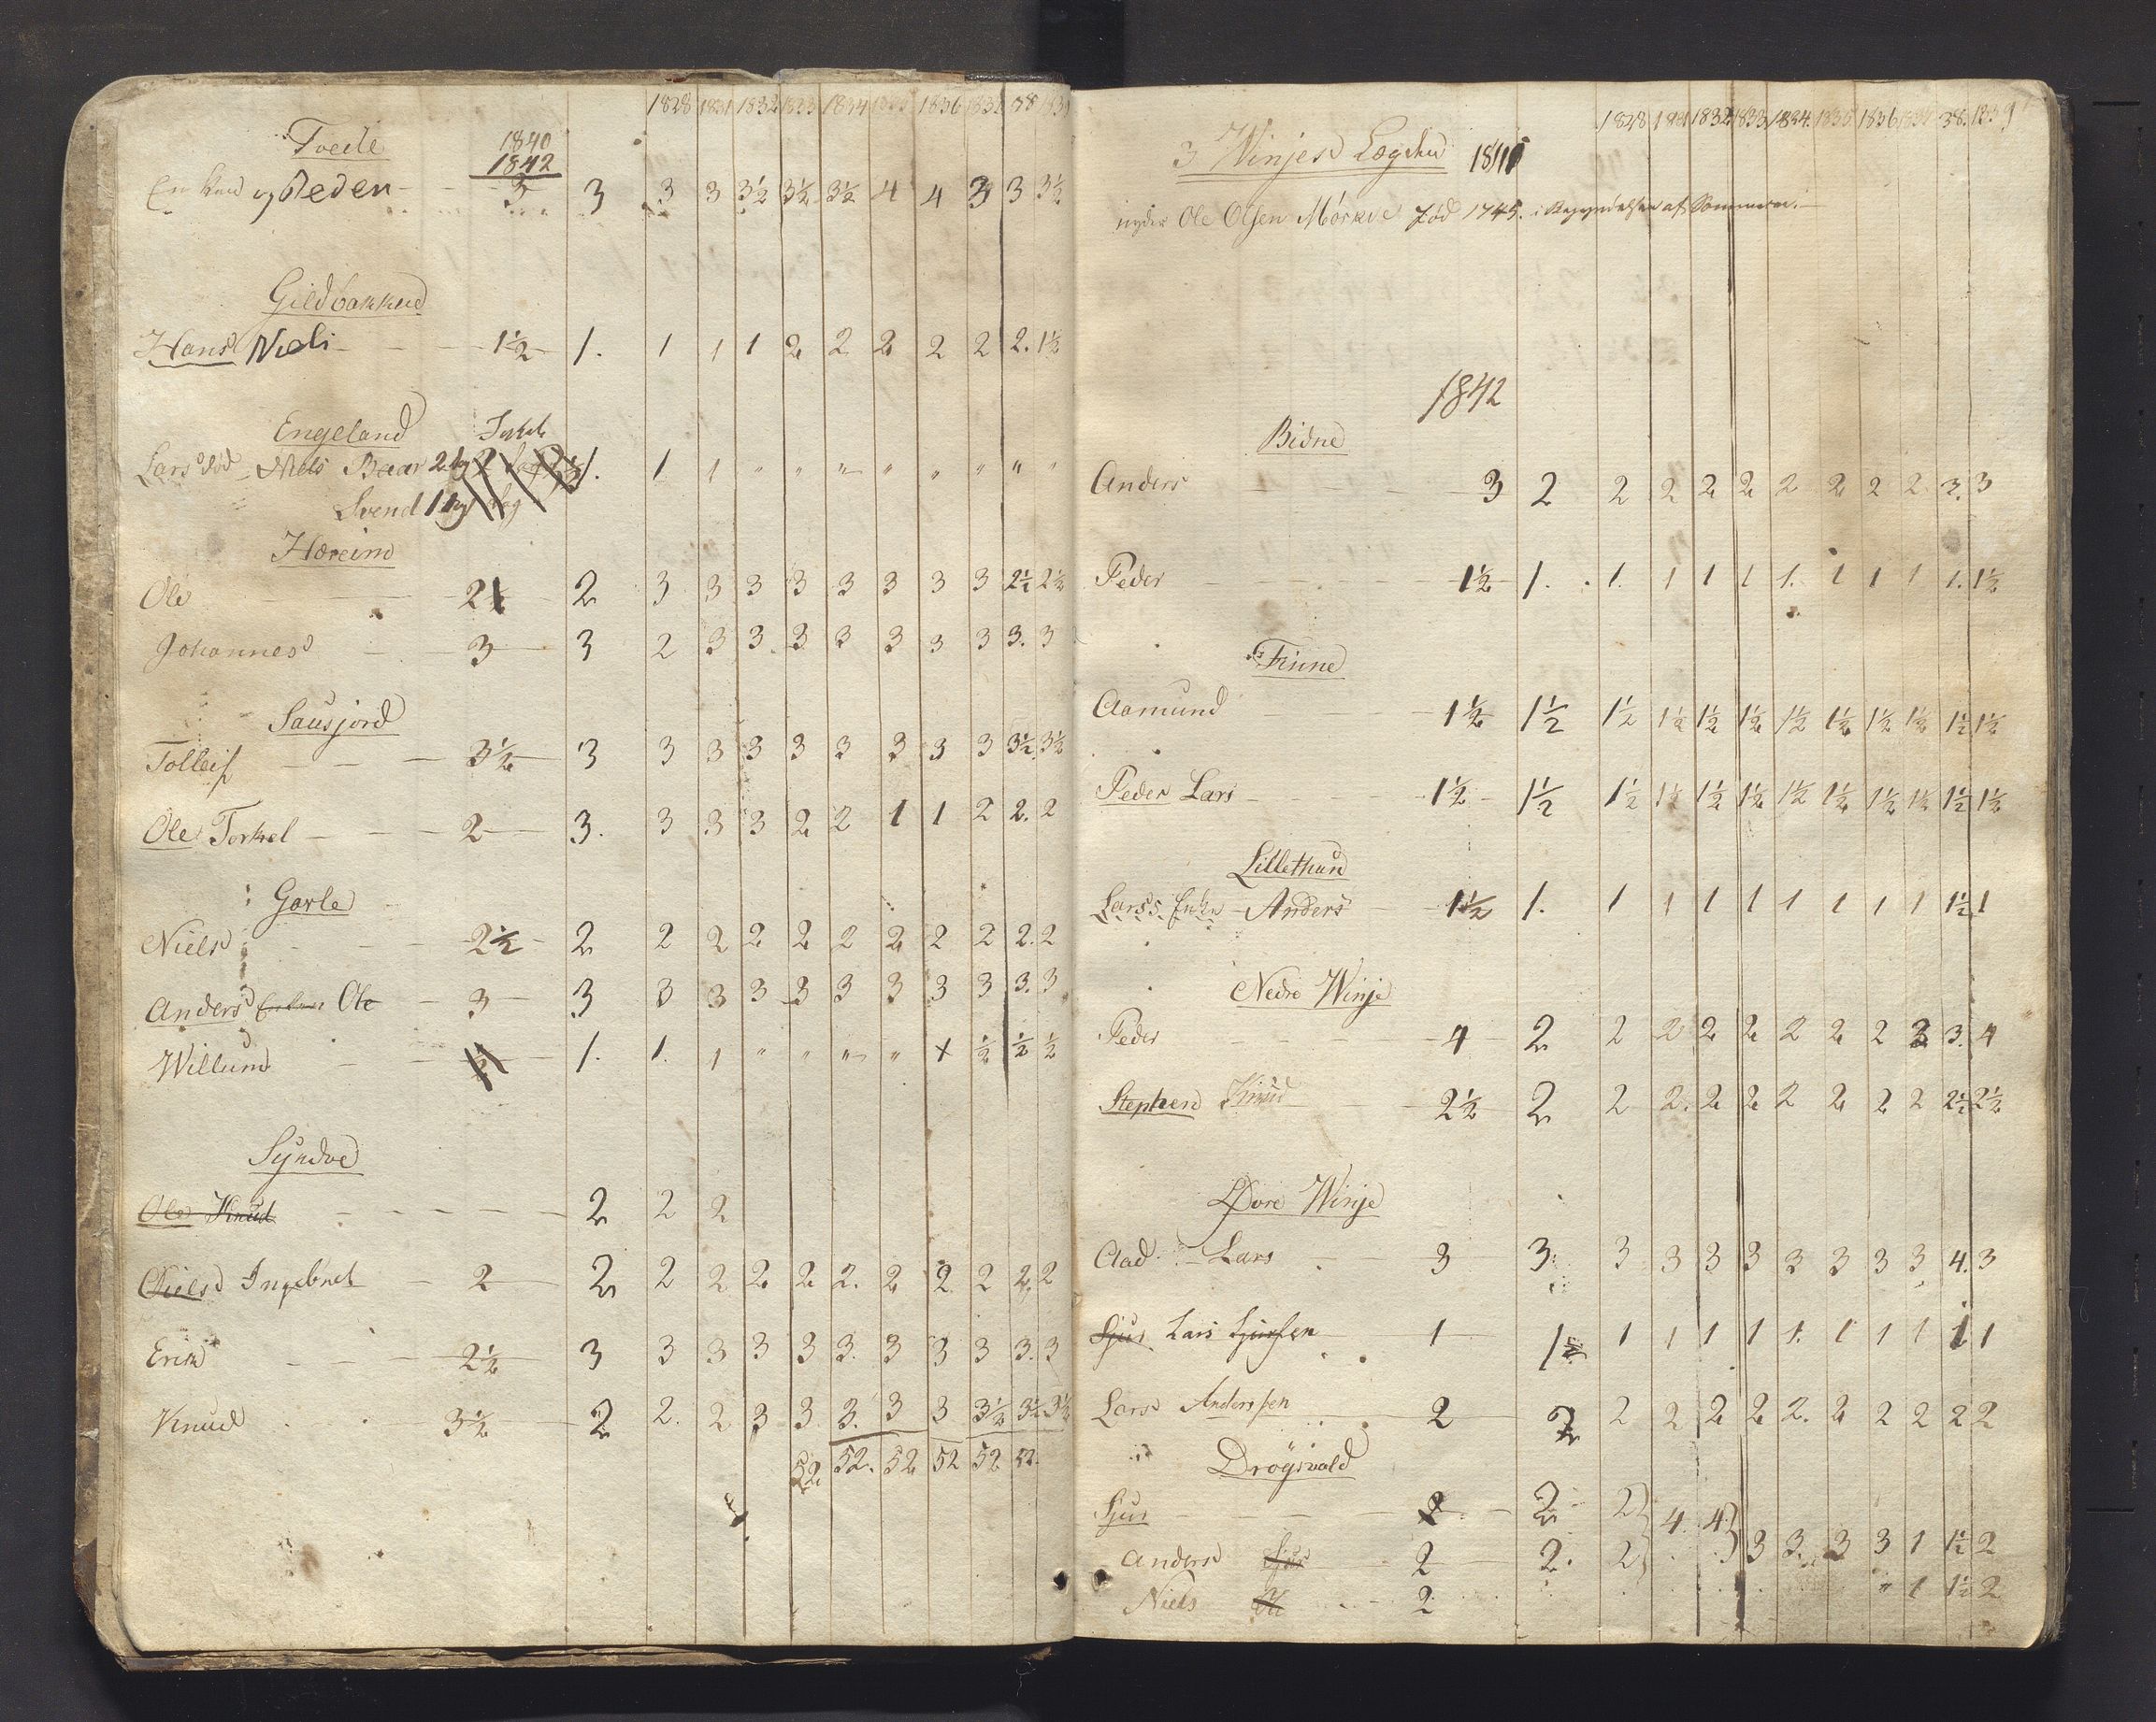 1828 1831 1832 1833 1834 1835 1836 1837 38 1839
Tvede 1840
1842
og Peder - 3 3 3 3 3½ 3½ 3½ 4 4 3 3 3½
Gildbakken
Hans Niels - 1½ 1. 1 1 1 2 2 2 2 2 2. 1½
Engeland
Lars død Niels Baar 2 1. 1 1 " " " " " " " "
Svend 1
Høreim
Ole 2½ 2 3 3 3 3 3 3 3 3 2½ 2½
Johannes - 3 3 2 3 3 3 3 3 3 3 3. 3
Sausjord
Tolleif - 3½ 3 3 3 3 3 3 3 3 3 3½ 3½
Ole Torkel - 2 3. 3 3 3 2 2 1 1 2 2. 2
Gorle
Niels - 2½ 2 2 2 2 2 2 2 2 2 2. 2
Anders Enken Ole - 3 3 3 3 3 3 3 3 3 3 3. 3
Willum - 1. 1. 1 " " " " ½ ½ ½
Syndve
Ole Knud - 2 2 2
Niels Ingebret - 2 2 2 2 2 2 2. 2 2 2 2 2
Erik - 2½ 3 3 3 3 3 3. 3 3 3 3. 3
Knud 3½ 2 2. 2 3 3 3. 3 3 3½ 3½ 3½
52 52. 52 52 52 52.
1828 1831 1832 1833 1834. 1835 1836 1837 38. 1839
3 Winjes Lægder
nyder Ole Olsen Mörkve Fód 1745. i Begyndelsen af Sommeren. -
1842
Bidne
Anders - 3 2 2 2 2 2 2 2 2 2 3. 3
Peder - 1½ 1. 1. 1 1 1 1. 1 1 1 1. 1½
Finne
Aamund - 1½ 1½ 1½ 1½ 1½ 1½ 1½ 1½ 1½ 1½ 1½ 1½
Peder Lars - 1½ 1½ 1½ 1½ 1½ 1½ 1½ 1½ 1½ 1½ 1½ 1½
Lillethun
Lars's Enke - Anders 1½ 1. 1 1 1 1 1 1 1 1 1½ 1
Nedre Winje
Peder - 4 2 2 2 2 2 2 2 2 3 3. 4
Stephen Knud - 2½ 2 2 2. 2 2 2 2 2 2 2½ 2½
Øvre Winje
Clad - Lars 3 3. 3 3 3 3 3 3 3 3 4. 3
Sjur Lars Sjursen 1 1½ 1 1 1 1 1. 1 1 1 1 1
Lars Anderssen 2 2 2 2 2 2 2. 2 2 2 2 2
Drögsvold
Sjur - 2 2 2 4. 4
Anders Sjur 2 2. 2 3 3. 3 3 1 1½ 2
Niels Ole 2 " 1 1½ 2